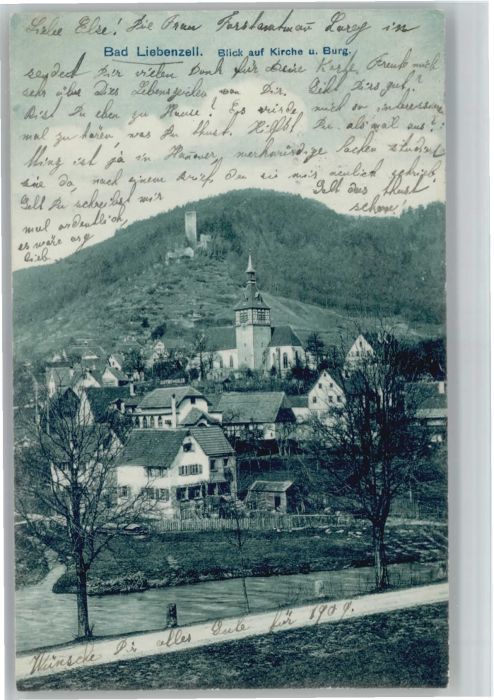 Liebe Else! Die Frau Forstamtmann in
Bad Liebenzell. Blick auf Kirche u. Burg.
sendet Dir vielen Dank für Deine Karte. Freute mich
sehr über Dies Lebenszeichen von Dir. Geht Dirs gut?
Bist Du eben zu Hause? Es würde mich so interessieren
mal zu hören, was Du thust. Hilfst Du, als mal aus?
ist ja in Hanover, merkwürdige Sachen studiert
sie da, nach einem Brief den sie mir neulich schrieb.
Gelt Du schreibst mir
Gelt das thust
mal ordentlich
schon.
es wäre arg
lieb.
Wünsche Dir alles Gute für 1909.